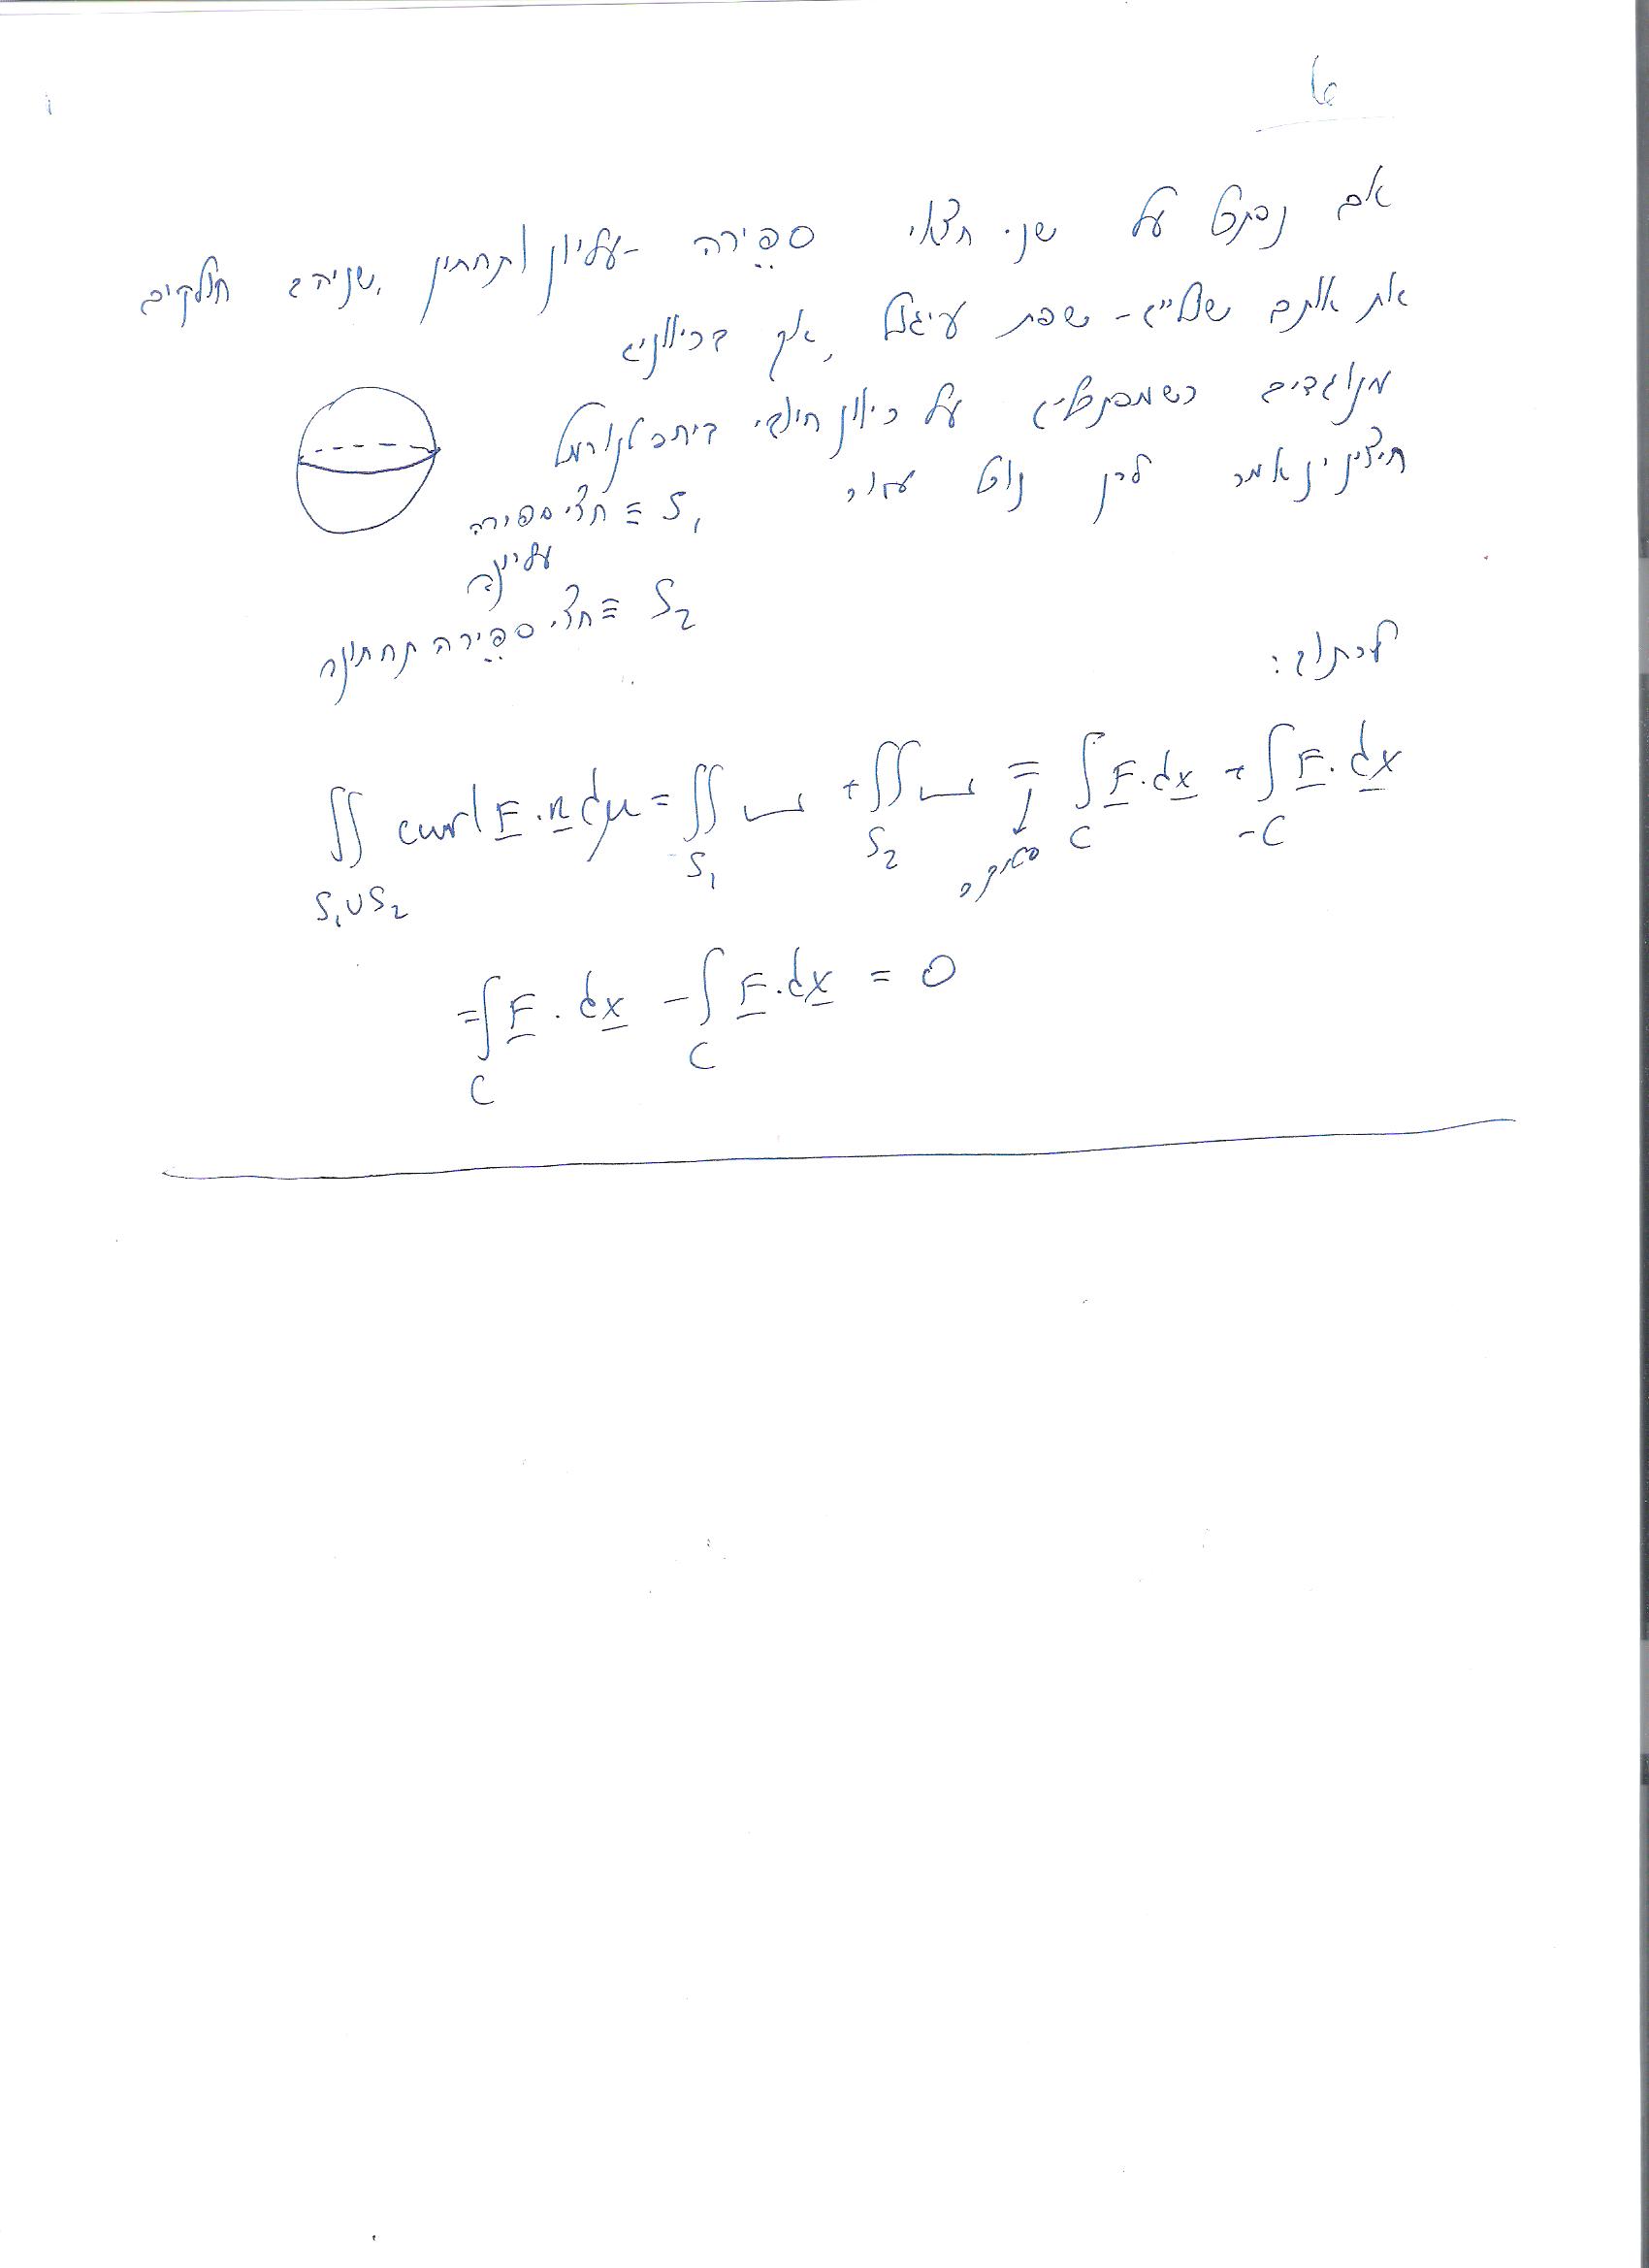 6
אם נסתכל על שני חצאי ספירה - עליון ותחתון, שניהם חולקים
את אותם שוליים - שפת עיגול, אך בכיוונים
מנוגדים כשמסתכלים על כיוון חיובי ביחס לנורמל
חיצוני נאמר לכן נוכל
S₁ ≡ חצי ספירה
עליונה
S₂ ≡ חצי ספירה תחתונה
לכתוב:
∬_{S₁∪S₂} curl F · n dμ = ∬_{S₁} ⎵ + ∬_{S₂} ⎵ = ∫_C F · dx + ∫_{-C} F · dx
סטוקס
= ∫_C F · dx - ∫_C F · dx = 0